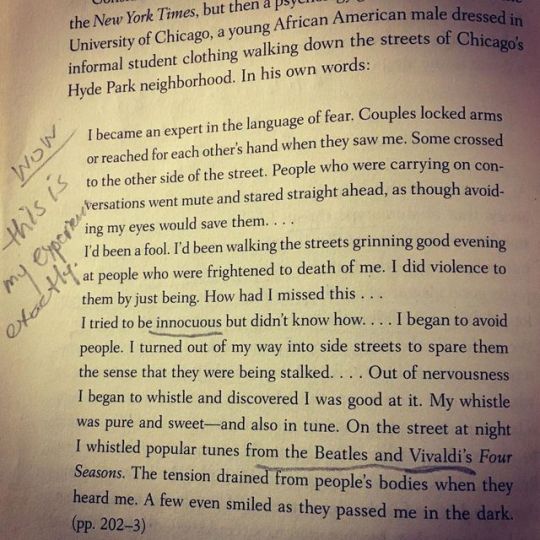 the New York Times, but then a
University of Chicago, a young African American male dressed in
informal student clothing walking down the streets of Chicago's
Hyde Park neighborhood. In his own words:
I became an expert in the language of fear. Couples locked arms
or reached for each other's hand when they saw me. Some crossed
to the other side of the street. People who were carrying on con-
versations went mute and stared straight ahead, as though avoid-
ing my eyes would save them. . . .
I'd been a fool. I'd been walking the streets grinning good evening
at people who were frightened to death of me. I did violence to
them by just being. How had I missed this . . .
I tried to be innocuous but didn't know how. . . . I began to avoid
people. I turned out of my way into side streets to spare them
the sense that they were being stalked. . . . Out of nervousness
I began to whistle and discovered I was good at it. My whistle
was pure and sweet—and also in tune. On the street at night
I whistled popular tunes from the Beatles and Vivaldi's Four
Seasons. The tension drained from people's bodies when they
heard me. A few even smiled as they passed me in the dark.
(pp. 202–3)
wow
this is
my experience
exactly.